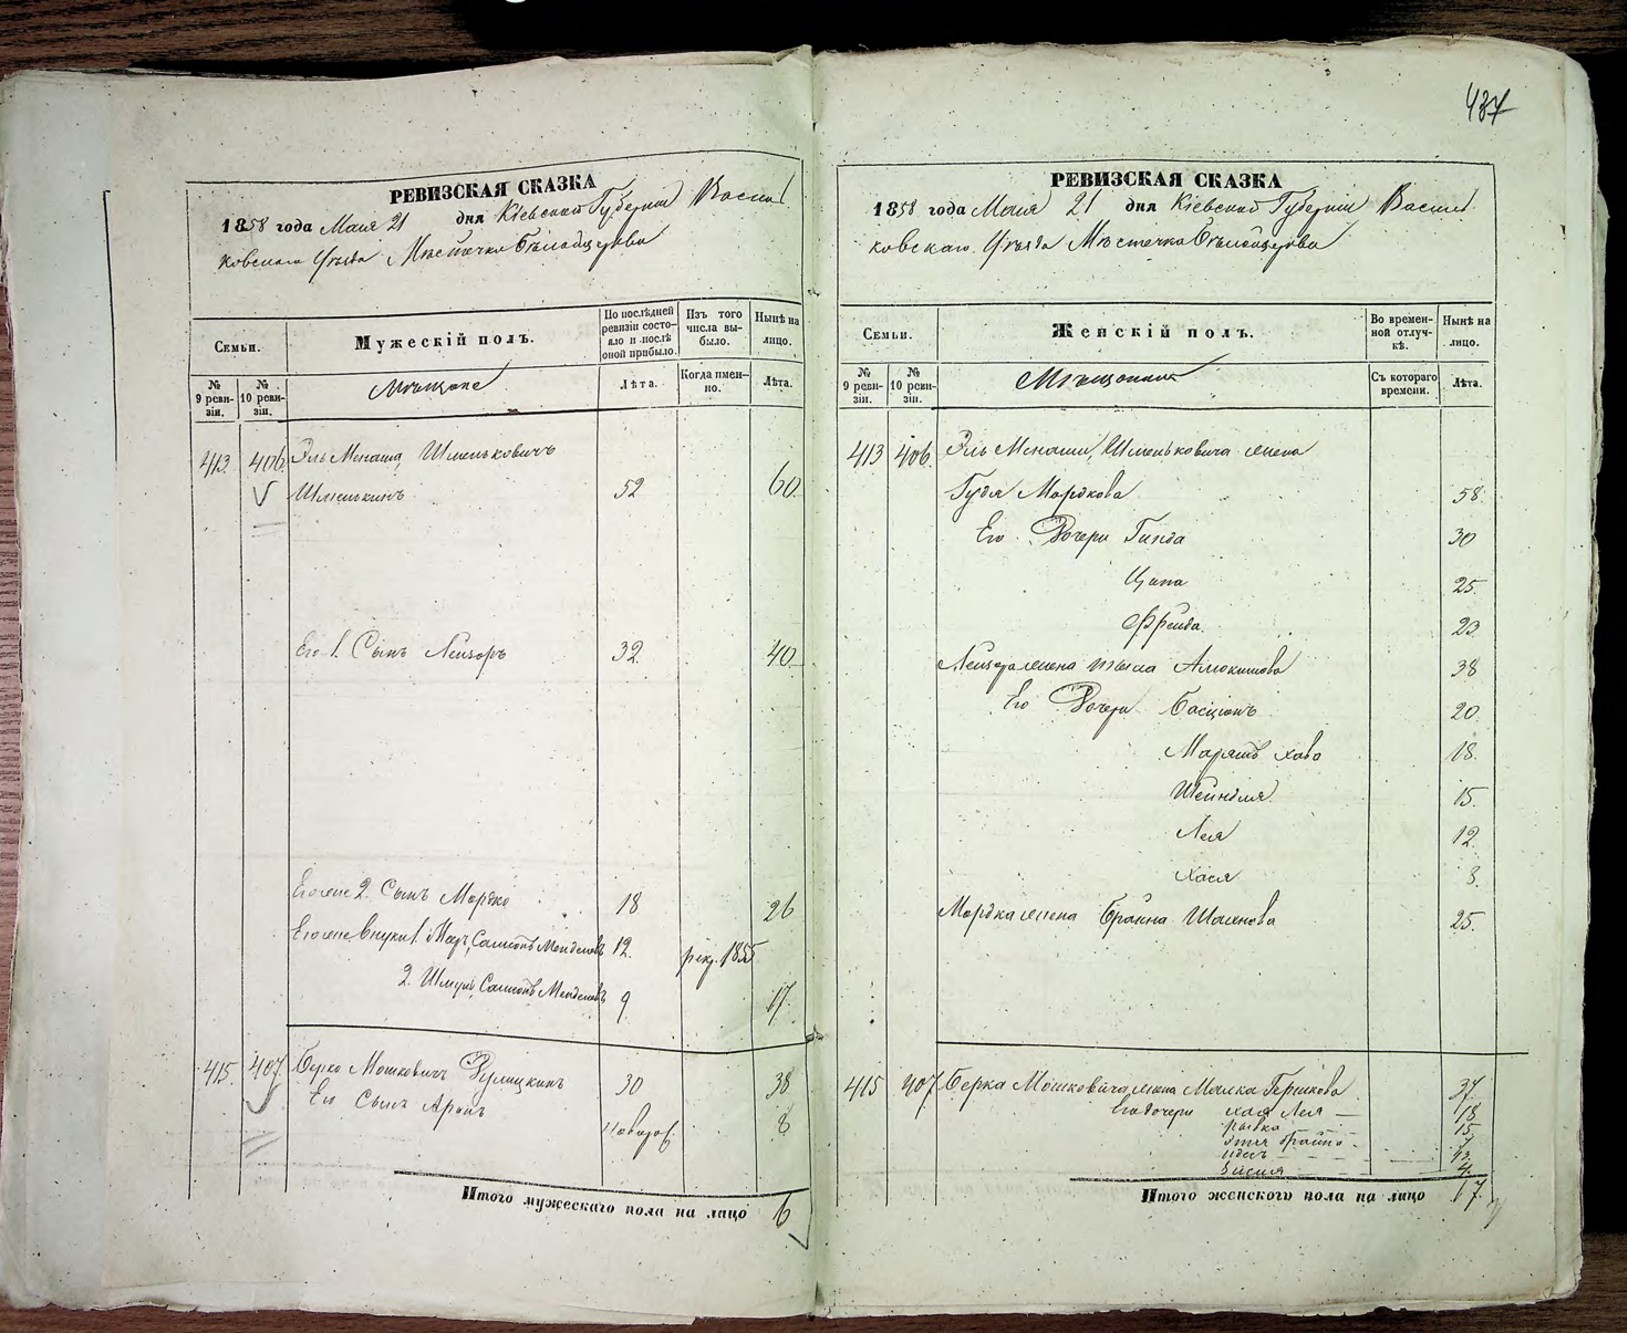 437
РЕВИЗСКАЯ СКАЗКА
1858 года Мая 21 дня Кіевской Губерніи Васил
ковскаго Уѣзда Мѣстечка Бѣлойцеркви
Семьи.
Мужескій полъ.
По послѣдней ревизіи состояло и послѣ оной прибыло.
Изъ того числа выбыло.
Нынѣ на лицо.
№ 9 ревизіи.
№ 10 ревизіи.
Мѣщане
Лѣта.
Когда именно.
Лѣта.
413 406 Эль Менаша Шменьковичъ
Шменькинъ 52 60
Его 1. Сынъ Лейзоръ 32 40
Его же 2. Сынъ Мордко 18 26
Его же внуки 1. Самсонъ Менделевъ 12. рекр. 1855
2. Шмуль Самсонъ Менделевъ 9 17
415. 407 Берко Мошковичъ 30 38
Его Сынъ Аронъ новорож. 8
Итого мужескаго пола на лицо 6
РЕВИЗСКАЯ СКАЗКА
1858 года Мая 21 дня Кіевской Губерніи Васил
ковскаго Уѣзда Мѣстечка Бѣлойцеркви
Семьи.
Женскій полъ.
Во временной отлучкѣ.
Нынѣ на лицо.
№ 9 ревизіи.
№ 10 ревизіи.
Мѣщанки
Съ котораго времени.
Лѣта.
413 406. Эль Менаши Шменьковича жена
Гудя Мордкова 58
Его Дочери Гинда 30
Ципа 25
Фрейда 23
Лейзора жена 38
Его Дочери Басціонъ 20
Маріямъ Хава 18
Шейндля 15
Лея 12
Хася 8.
Мордка жена Брайна 25.
415 407 Берка Мошковича жена Малка Гершкова 37
Его дочери Хая Лея 18
Рывка 15
Этля Брайна
Идесъ
4.
Итого женскаго пола на лицо 17